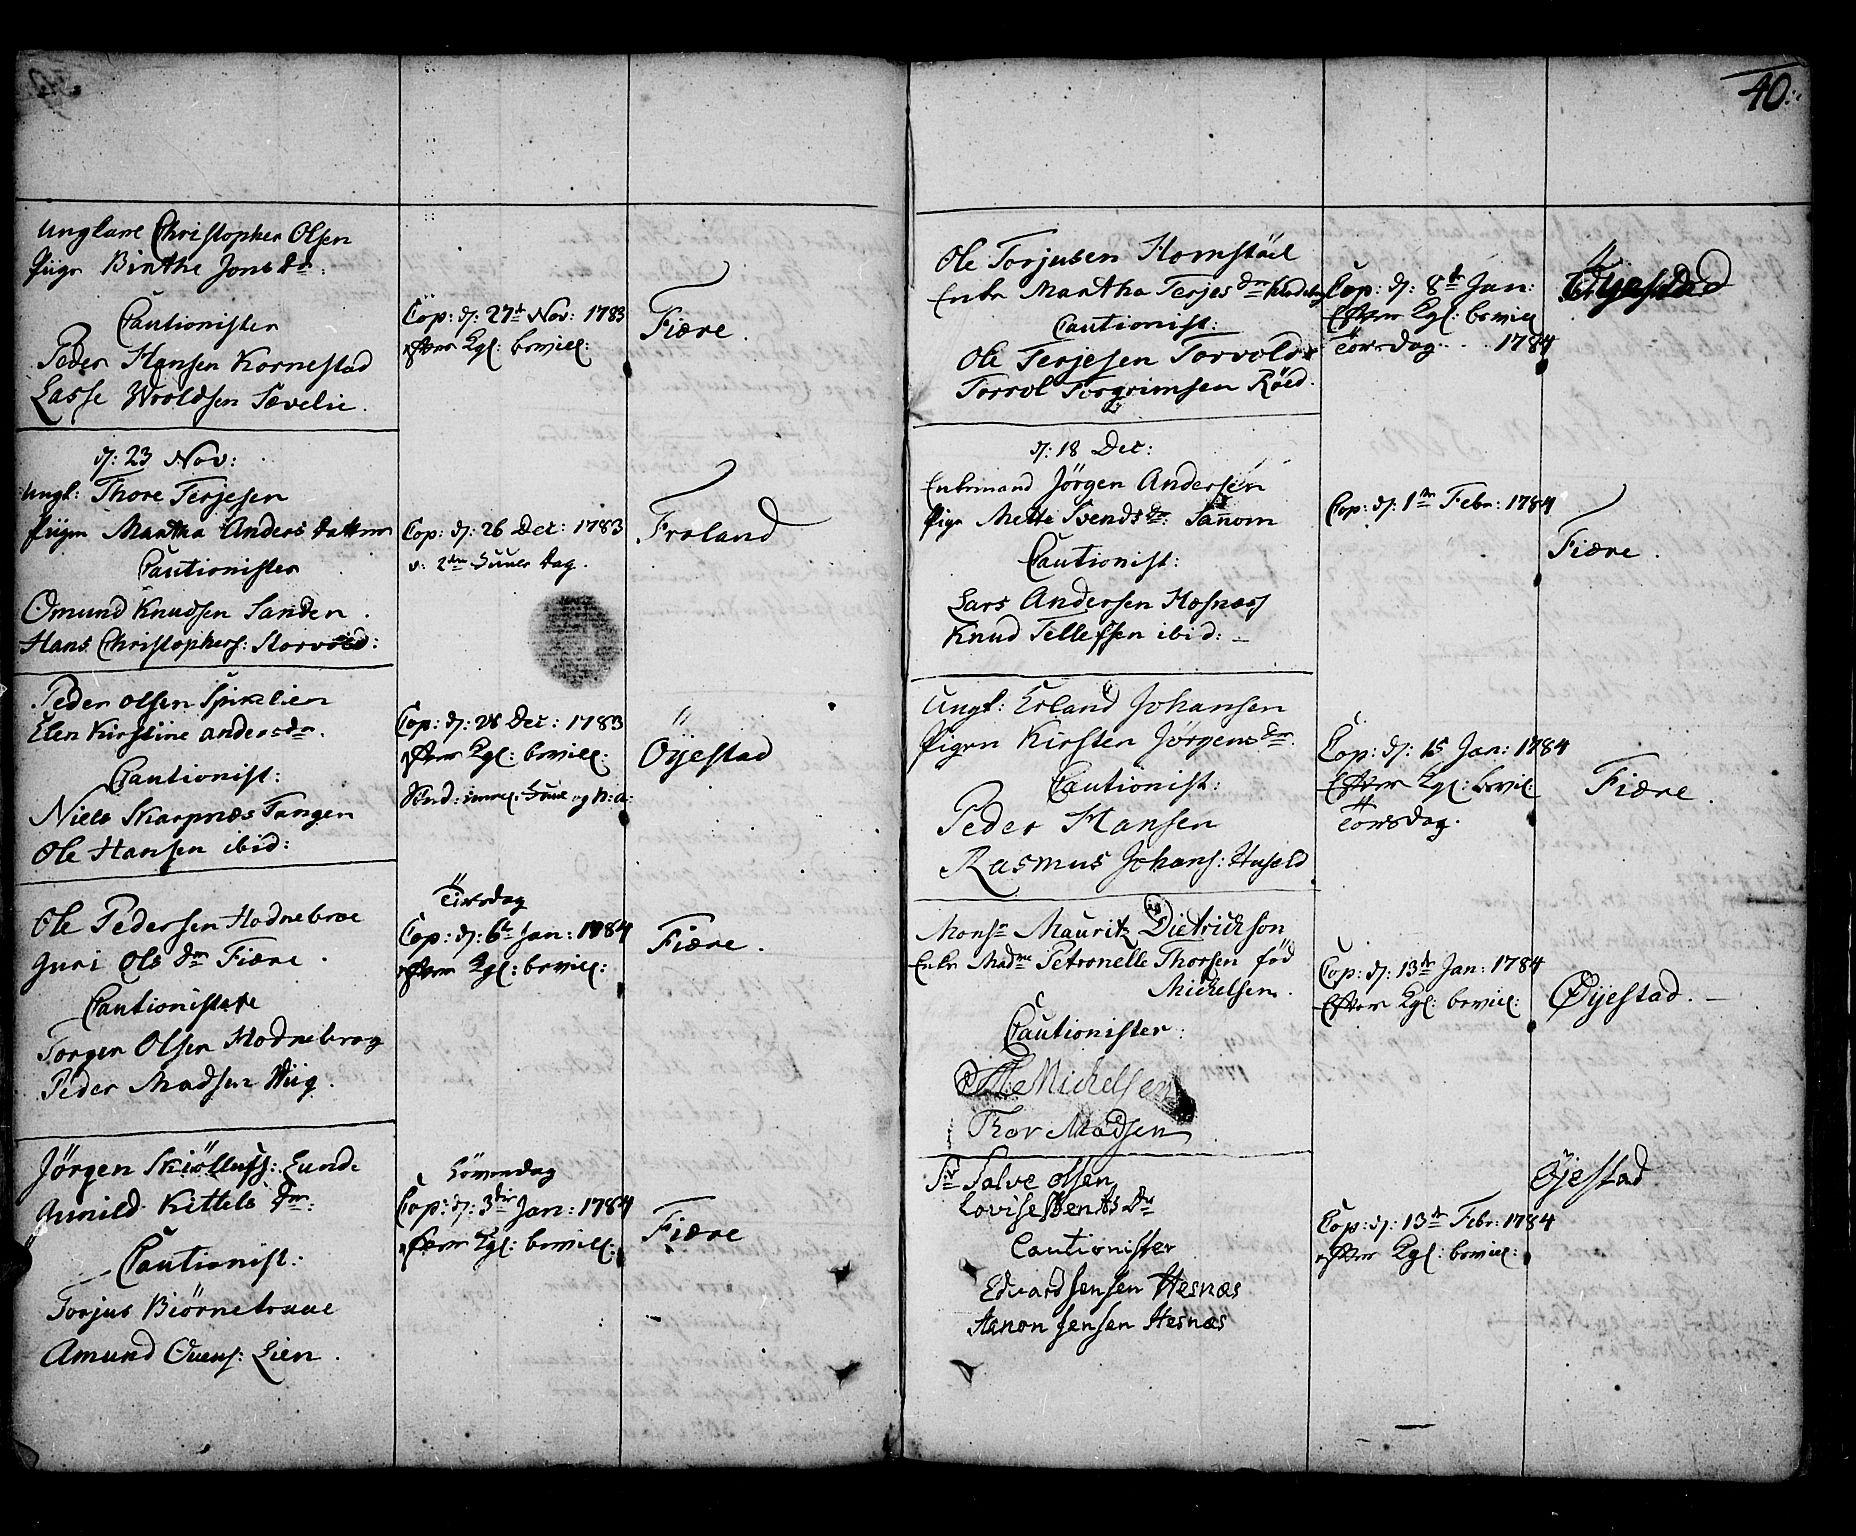 40.
Ungkarl Christopher Olsen
Piigen Birthe Jons Dr:
Cautionister
Peder Hansen Kornestad
Lasse Wroldsen Sævelie.
Cop: d: 27de Nov: 1783
efter Kgl: bevill:
Fiære.
d: 23 Nov:
Ungk: Thore Terjesen
Piigen Martha Anders Datter
Cautionister
Omund Knudsen Sanden.
Hans Christophers: Storvold:
Cop: d: 26 Dec: 1783
v: 2den Juule Dag.
Froland
Peder Olsen Spirelien
Elen Kirstine Andersdr.
Cautionist:
Niels Skarpnæs Tangen
Ole Hansen ibid:
Cop: d: 28 Dec: 1783
efter Kgl: bevill:
Sönd: imel: Juul og N: A:
Öyestad
Ole Pedersen Hodnebroe
Guri Ols Dr Fiære.
Cautionistere
Torger Olsen Hodnebrog
Peder Madsen Wiig.
Tirsdag
Cop: d: 6te Jan: 1784
efter Kgl: bevill:
Fiære.
Jörgen Skiöllufs: Lunde
Gunild Kittels Dr:
Cautionist:
Torjus Biörnetraae
Amund Ovens: Lien.
Löverdag
Cop: d: 3die Jan: 1784
efter Kgl: bevill:
Fiære
Ole Torjusen Homstöel
Enke Martha Terjes Dr
Cautionist:
Ole Terjesen Torvolds
Torvol Torgrimsen Röed.
Cop: d: 8de Jan:
Efter Kgl: bevill
Torsdag. 1784
Öyestad
d: 18 Dec:
Enkemand Jörgen Andersen
Pige Mette Svends Dr: Sannom
Cautionist:
Lars Andersen Hæsnæss
Knud Tellefsen ibid:
Cop: d: 1te Febr: 1784
Fiære.
Ungk: Erland Johansen
Pigen Kirsten Jörgens Dr.
Cautionist:
Peder Hansen
Rasmus Johans: Husold
Cop: d: 15 Jan: 1784
Efter Kgl: bevil:
Torsdag.
Fiære.
Monsr Mauritz Dietrichson
Enke Madme Petronelle Thorsen föd
Michelsen.
Cautionister:
Michelsen
Thor Madsen
Cop: d: 13de Jan: 1784
Efter Kgl: bevill:
Öyestad.
Sr Salve Olsen
Lovise Bents Dr
Cautionister
Edvard Jensen Hesnæs
Aanon Jensen Hesnæs
Cop: d: 13de Febr: 1784
efter Kgl: bevill:
Öjestad